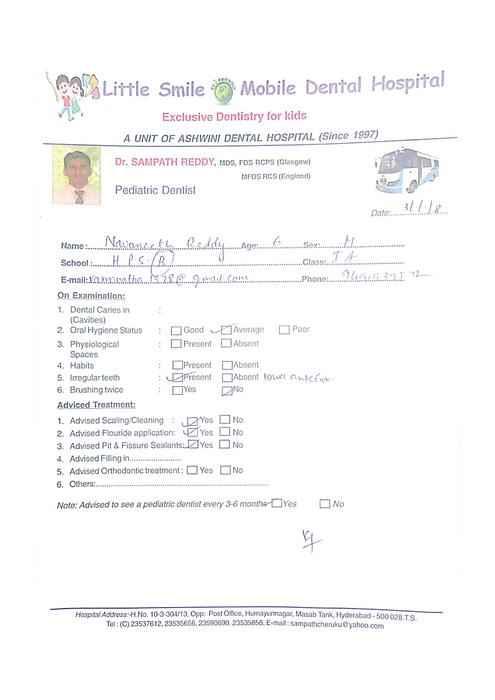 Little Smile Mobile Dental Hospital
Exclusive Dentistry for kids
A UNIT OF ASHWINI DENTAL HOSPITAL (Since 1997)
Dr. SAMPATH REDDY, MDS, FDS RCPS (Glasgow)
MFDS RCS (England)
Pediatric Dentist
Date:
Name: Navaneeth Reddy Age: 6 Sex: M
School: H P S (R) Class: I A
E-mail: @gmail.com Phone:
On Examination:
1. Dental Caries in :
(Cavities)
2. Oral Hygiene Status : Good Average Poor
3. Physiological : Present Absent
Spaces
4. Habits : Present Absent
5. Irregular teeth : Present Absent lower
6. Brushing twice : Yes No
Adviced Treatment:
1. Advised Scaling/Cleaning : Yes No
2. Advised Flouride application: Yes No
3. Advised Pit & Fissure Sealants: Yes No
4. Advised Filling in....................
5. Advised Orthodontic treatment : Yes No
6. Others:
Note: Advised to see a pediatric dentist every 3-6 months Yes No
Hospital Address:-H.No. 10-3-304/13, Opp: Post Office, Humayunnagar, Masab Tank, Hyderabad - 500 028.T.S.
Tel : (C) 23537612, 23535656, 23593690, 23535856, E-mail : sampathcheruku@yahoo.com